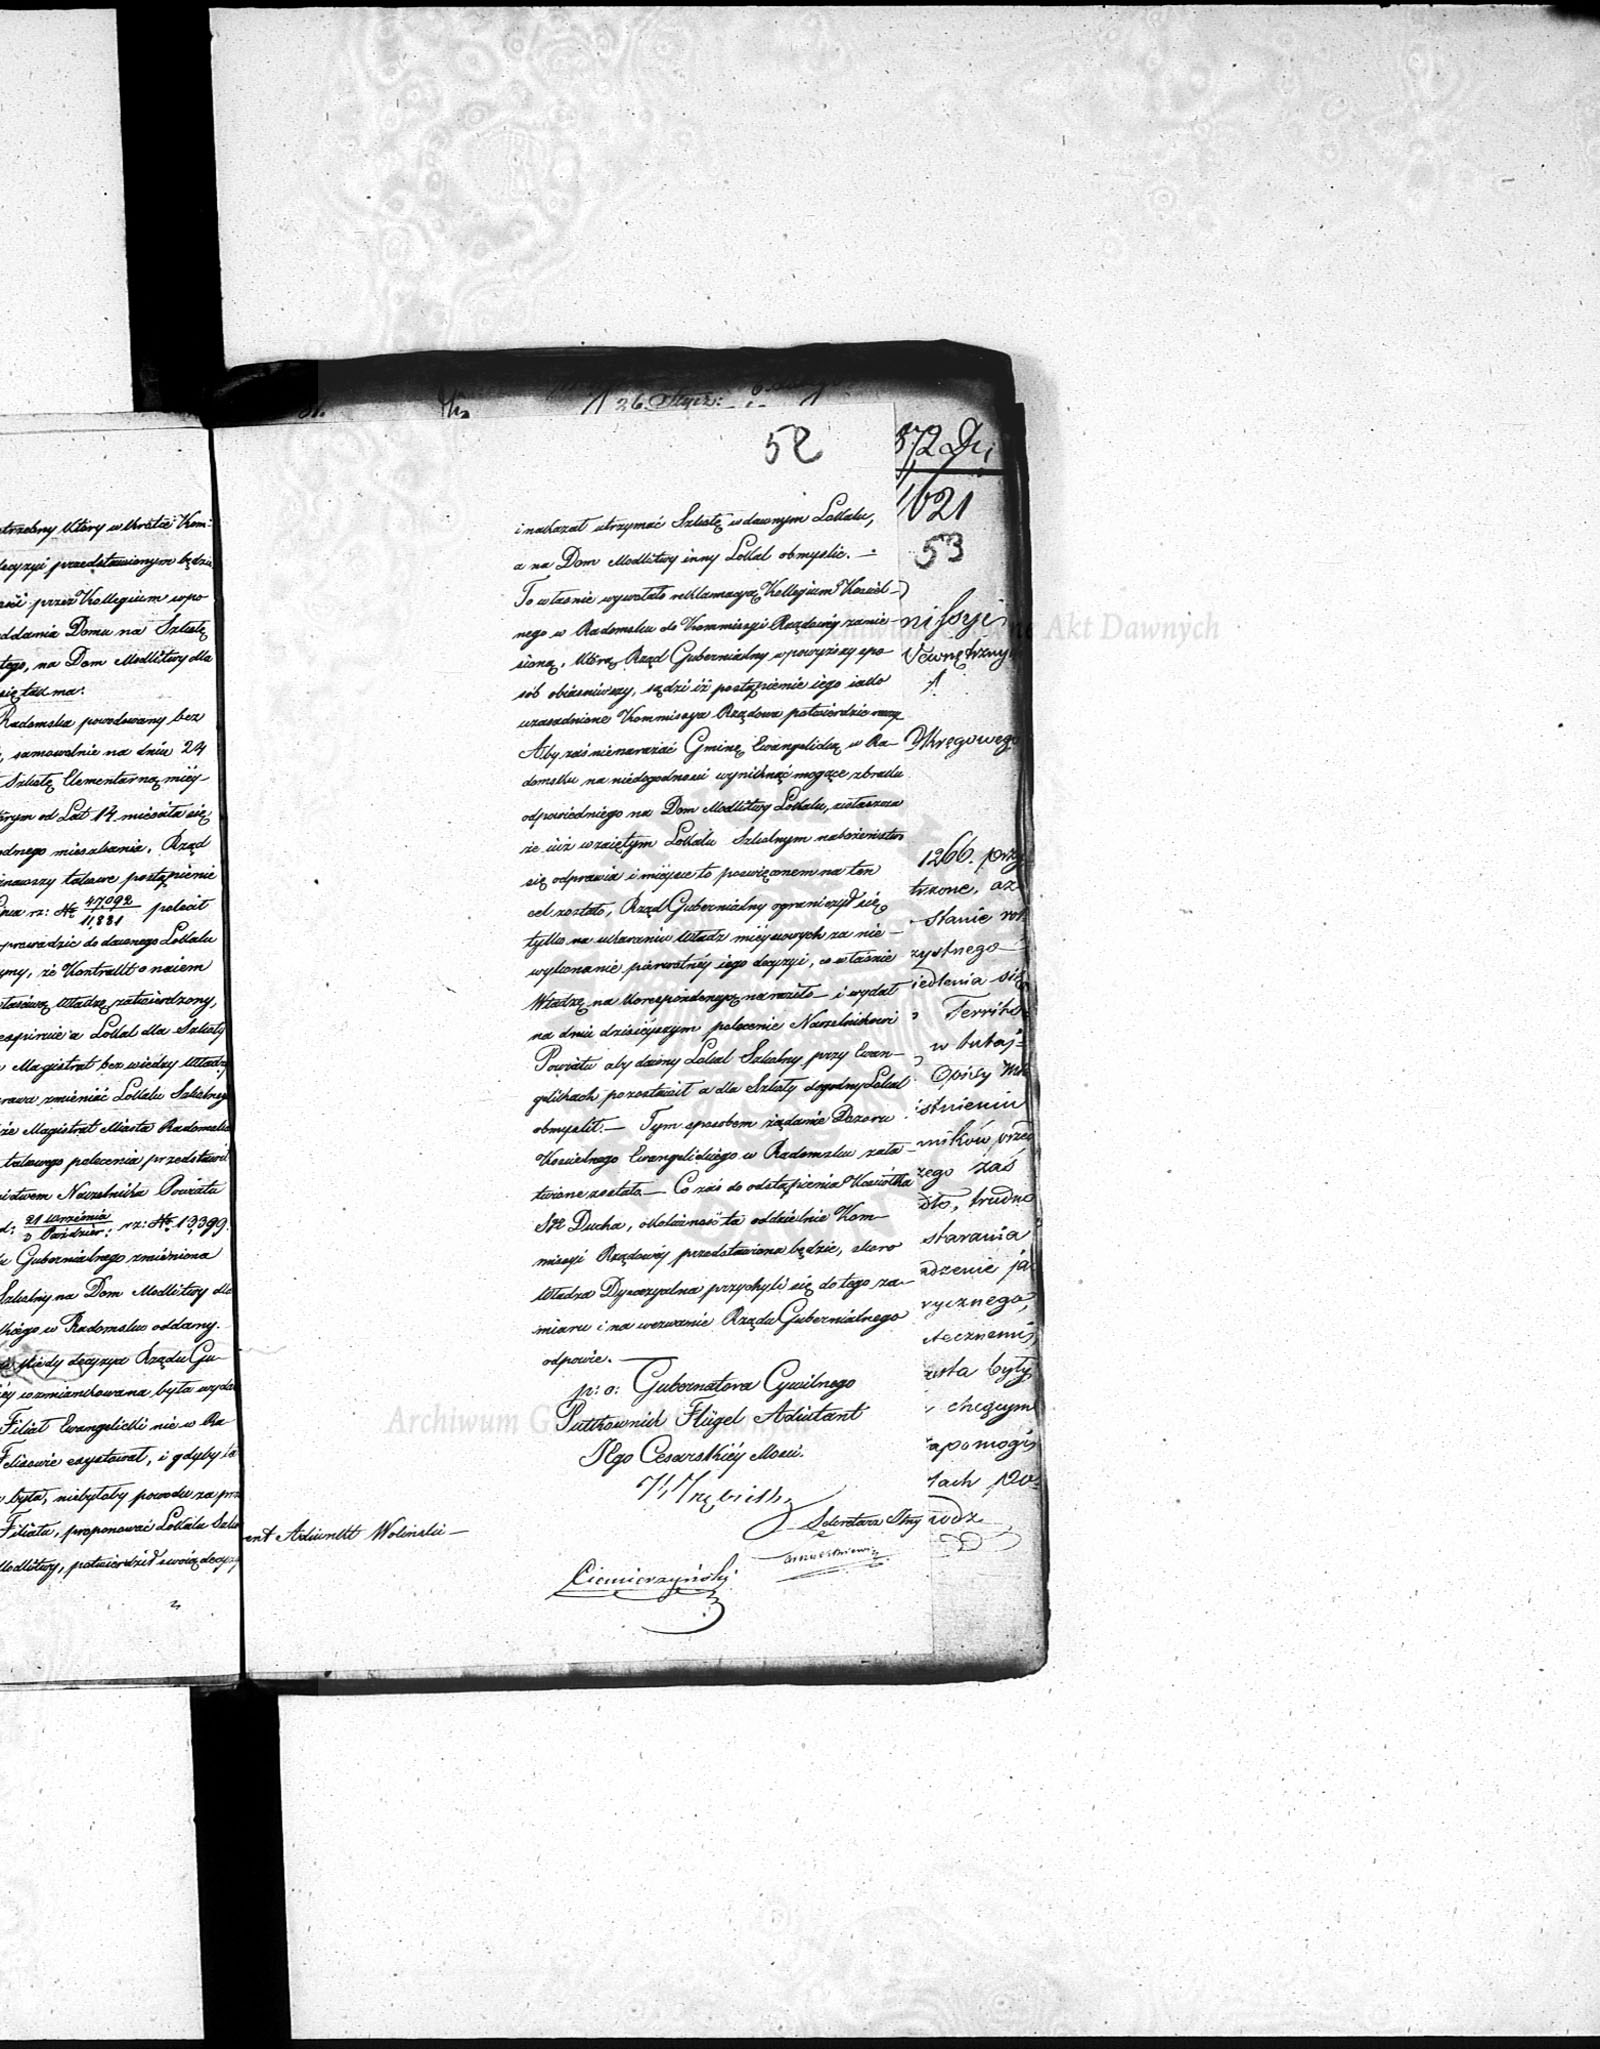 trzebny który w krótce Kom:
decyzyi przedstawionym będzie
przez Kollegium wpo
ddania Domu na Szkołę
tego, na Dom Modlitwy dla
się tu ma.
Radomska powodowany bez
samowolnie na dniu 24
Szkołę Elementarną miey-
rym od Lat 14 mieściła się
odnego mieszkania. Rząd
znawszy takowe postąpienie
nia rz: No 47092/11,881 polecił
prowadzić do dawnego Lokalu
ymy, że Kontrakt o naiem
właściwą Władzę zatwierdzony,
expiruie a Lokal dla Szkoły
Magistrat bez wiedzy Władzy
rawa zmieniać Lokalu Szkolnego
że Magistrat Miasta Radomska
takowego polecenia przedstawił
nictwem Naczelnika Powiatu
d: 21 Września/3 Paździer: rz: No 13399.
u Gubernialnego zmieniona
Szkolny na Dom Modlitwy dla
kiego w Radomsku oddany.
kiedy decyzya Rządu Gu-
iey wzmiankowana była wyda
Filiał Ewangelicki nie w Ra
Felixowie exystował, i gdyby ta
była, niebyłoby powodu za prze
Filiału, proponować Lokalu Szkol
Modlitwy, potwierdził swoią decyzyę
26 Stycz:
52
i nakazał utrzymać Szkołę w dawnym Lokalu,
a na Dom Modlitwy inny Lokal obmyślić. —
To właśnie wywołało reklamacyą Kollegium Kościel-
nego w Radomsku do Kommissyi Rządowéy zanie-
sioną, którą Rząd Gubernialny w powyższy spo-
sób obiaśniwszy, sądzi iż postąpienie iego iako
uzasadnione Kommissya Rządowa potwierdzić raczy
Aby zaś nienarażać Gminę Ewangelicką w Ra-
domsku na niedogodności wyniknąć mogące z braku
odpowiedniego na Dom Modlitwy Lokalu, zwłaszcza
że iuż w zaiętym Lokalu Szkolnym nabożeństwo
się odprawia i mieysce to poświęconem na ten
cel zostało, Rząd Gubernialny ograniczył się
tylko na ukaraniu Władz mieyscowych za nie-
wykonanie pierwotnéy iego decyzyi, co właśnie
Władzę na korespondencyą naraziło — i wydał
na dniu dzisieyszym polecenie Naczelnikowi
Powiatu aby dawny Lokal Szkolny przy Ewan-
gelikach pozostawił a dla Szkoły dogodny Lokal
obmyślił. — Tym sposobem żądanie Dozoru
Kościelnego Ewangelickiego w Radomsku zała-
twione zostało. — Co zaś do odstąpienia Kościółka
Sgo Ducha, okoliczność ta oddzielnie Kom-
missyi Rządowéy przedstawiona będzie, skoro
Władza Dyecezyalna przychyli się do tego za-
miaru i na wezwanie Rządu Gubernialnego
odpowie. —
p: o: Gubernatora Cywilnego
Pułkownik Flügel Adiutant
Jego Cesarskiéy Mości.
Sekretarz Jlny
ent Adiunkt Woliński —
872
1621
53
missyi
Wewnętrznych
Okręgowego
1266. przy
trzone, az
stanie rol
zystnego
iedlenia się
Territo
w tutej-
Opisy
istnieniu
ników przed
zego zaś
dło, trudno
starania
adzenie ja
rycznego,
tecznemi
asta były
chcącym
apomogi
łach pow
wdz
Archiwum Główne Akt Dawnych
Archiwum Główne Akt Dawnych